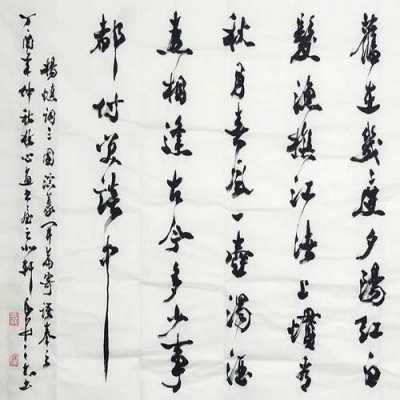 舊在幾度夕陽紅白
髮漁樵江渚上慣看
秋月春風一壺濁酒
喜相逢古今多少事
都付笑談中
楊慎詞三國演義開篇寄語
丁酉年仲秋